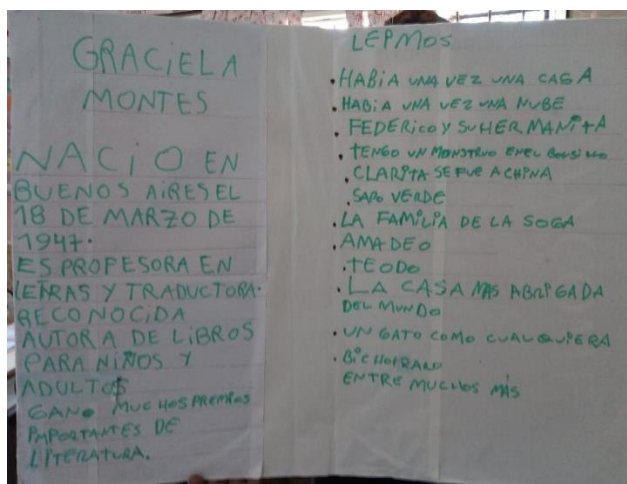 GRACIELA
MONTES
NACIO EN
BUENOS AIRES EL
18 DE MARZO DE
1947.
ES PROFESORA EN
LETRAS Y TRADUCTORA.
RECONOCIDA
AUTORA DE LIBROS
PARA NIÑOS Y
ADULTOS
GANO MUCHOS PREMIOS
IMPORTANTES DE
LITERATURA.
LEIMOS
.HABIA UNA VEZ UNA CASA
.HABIA UNA VEZ UNA NUBE
.FEDERICO Y SU HERMANITA
.TENGO UN MONSTRUO EN EL BOLSILLO
.CLARITA SE FUE A CHINA
.SAPO VERDE
.LA FAMILIA DE LA SOGA
.AMADEO
.TEODO
.LA CASA MAS ABRIGADA
DEL MUNDO
.UN GATO COMO CUALQUIERA
.BICHO RARO
ENTRE MUCHOS MÁS